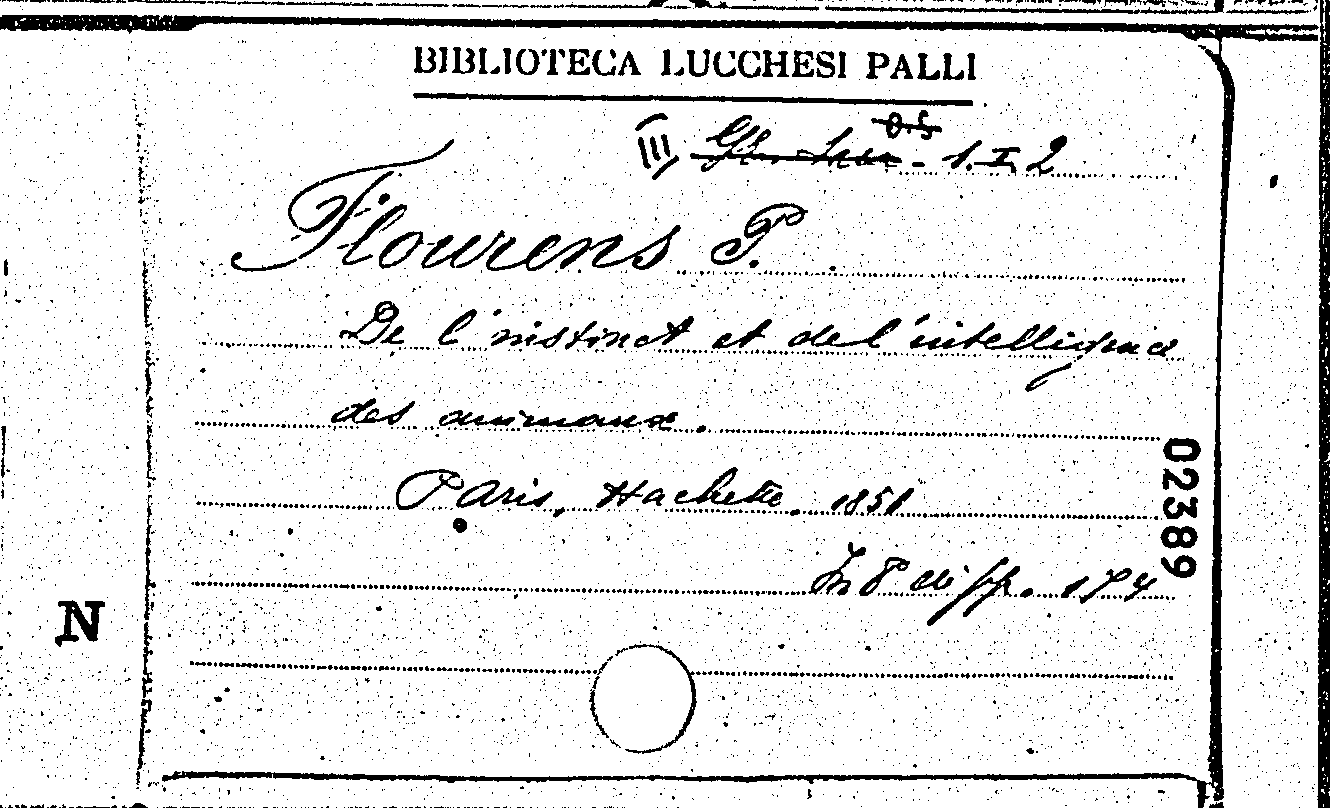 BIBLIOTECA LUCCHESI PALLI
III 1. I. 2
Flourens P.
De l'instinct et de l'intelligence
des animaux.
Paris, Hachette, 1851
In 8 di pp. 174
02389
N